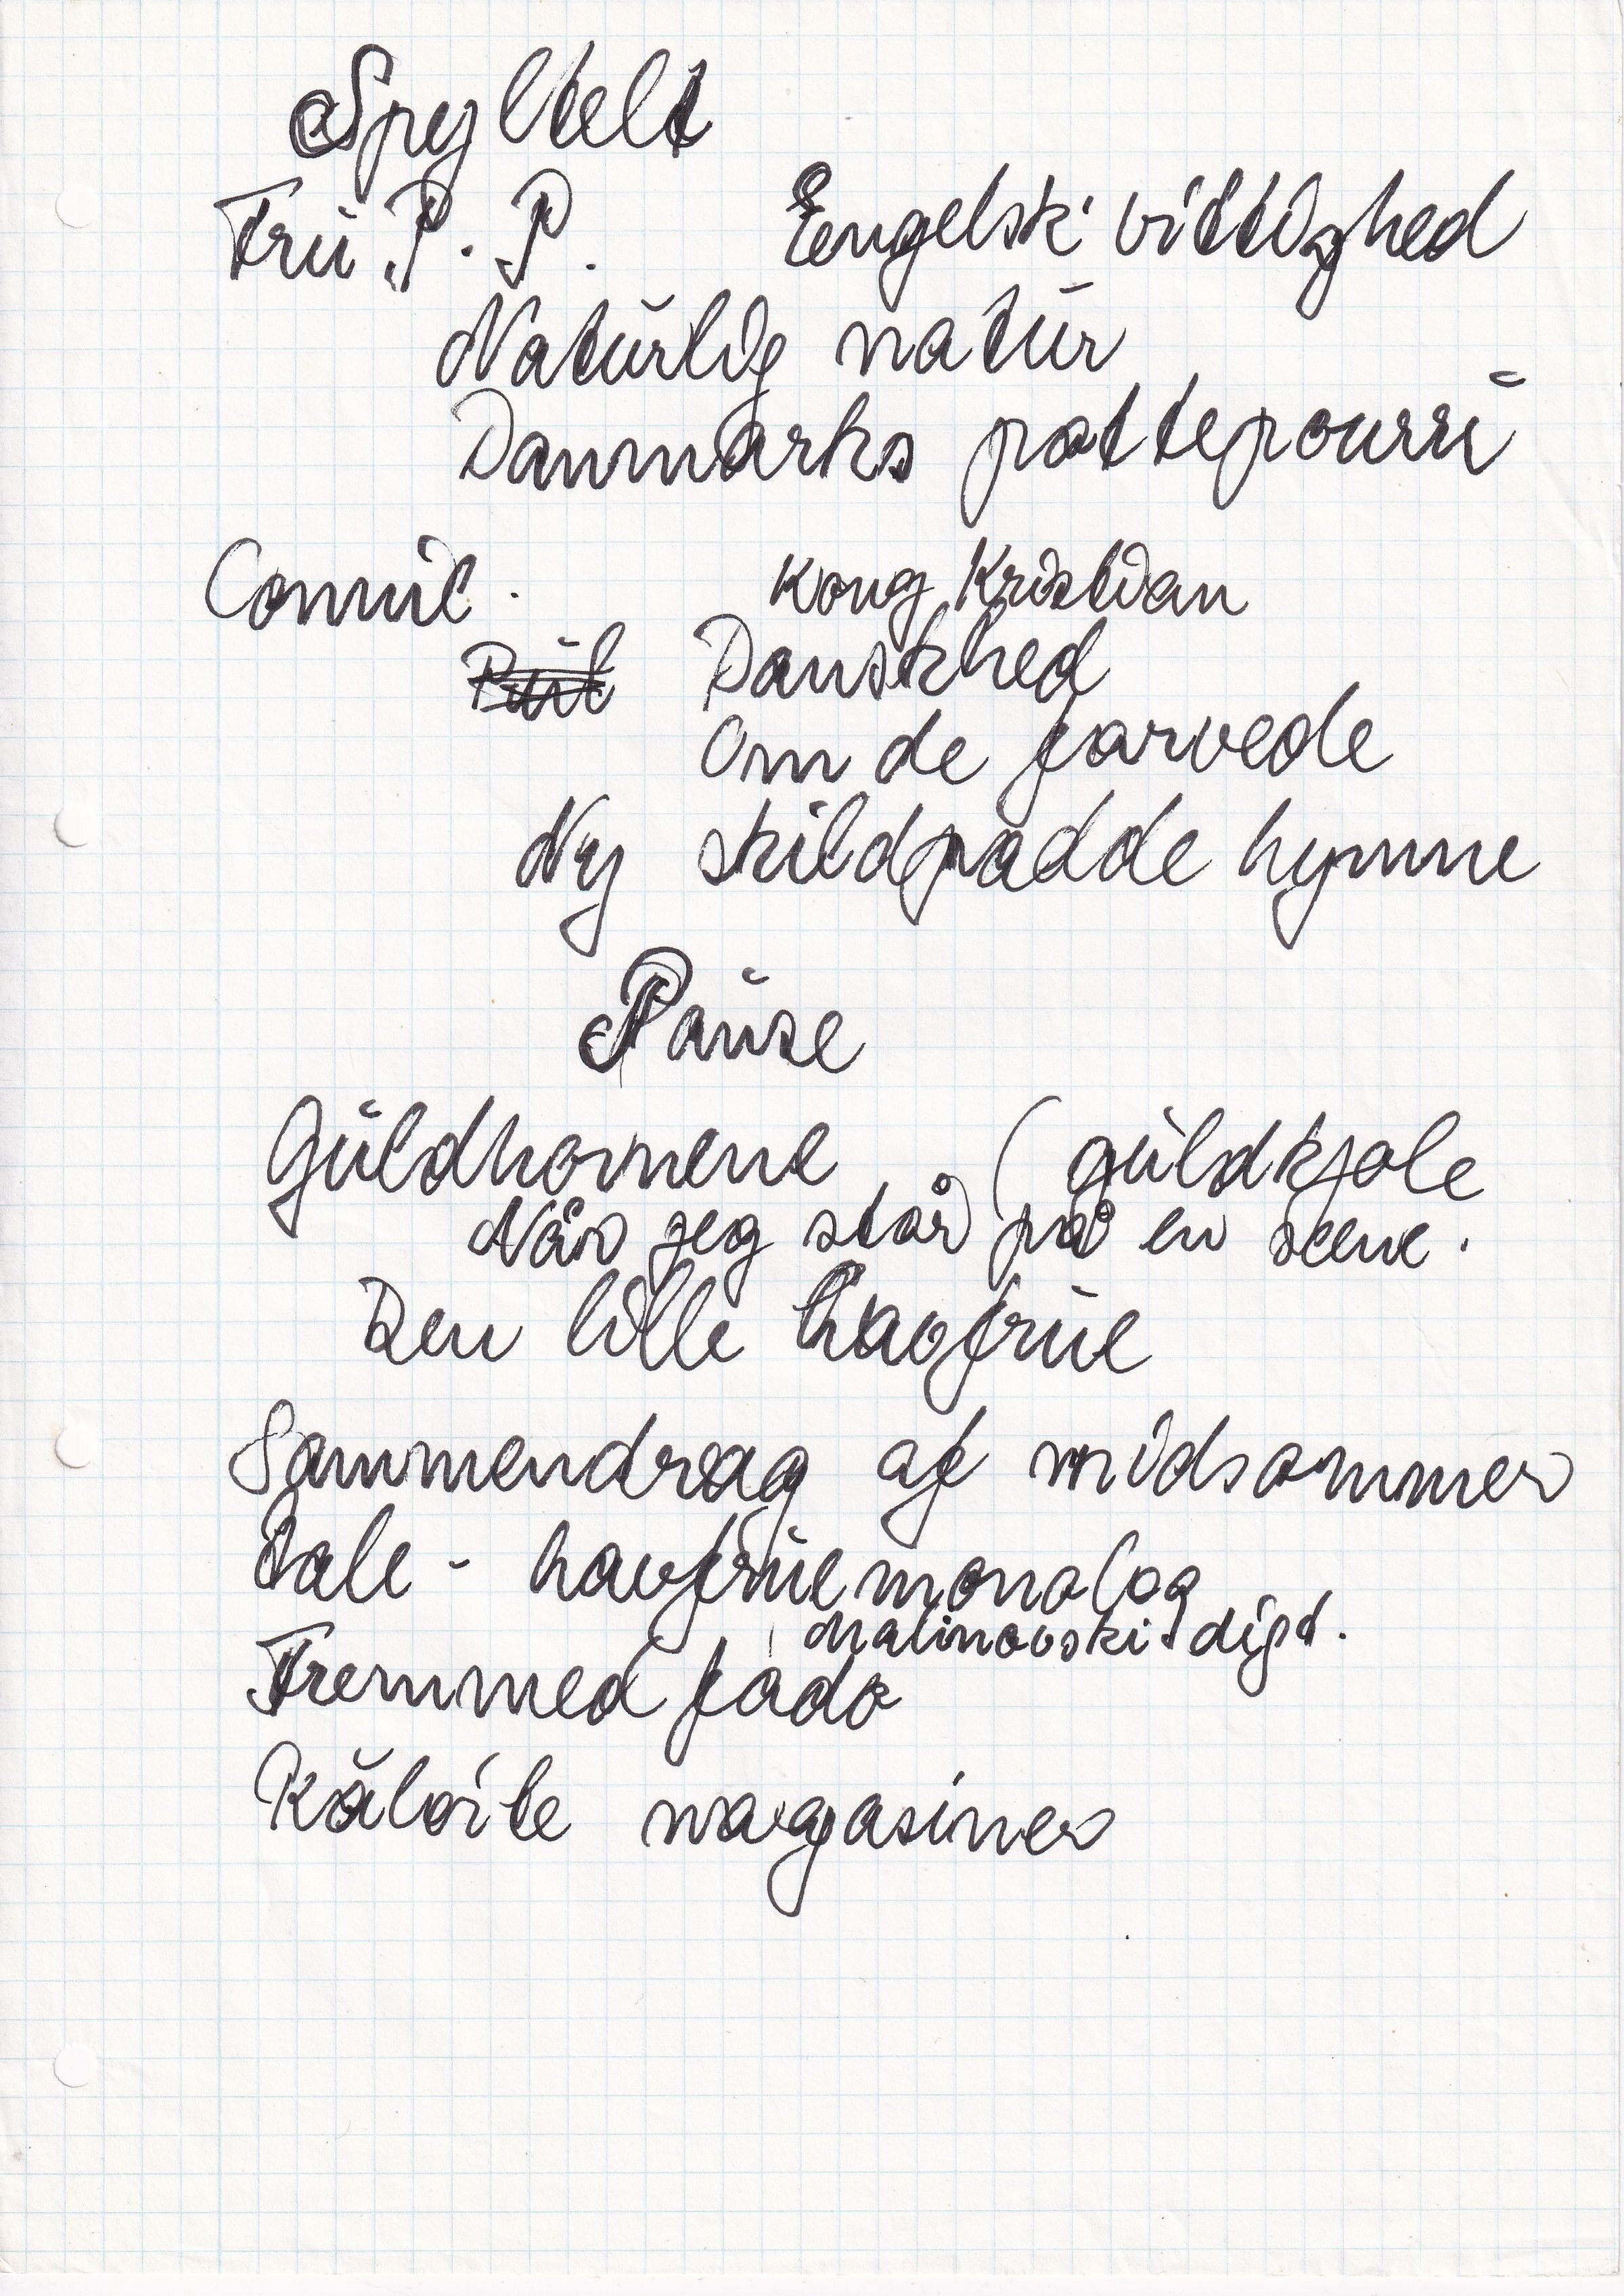 Spejltelt
Fru P. P. Engelsk vittighed
Naturlig natur
Danmarks pottepourri
Connie. Kong Kristian
Danskhed
Om de farvede
Ny skildpadde hymne
Pause
Guldhornene (guldkjole
Når jeg står på en scene.
Den lille havfrue
Sammendrag af midsommer
tale - havfruemonolog
Malinovski digt.
Fremmed fado
Kulørte magasiner